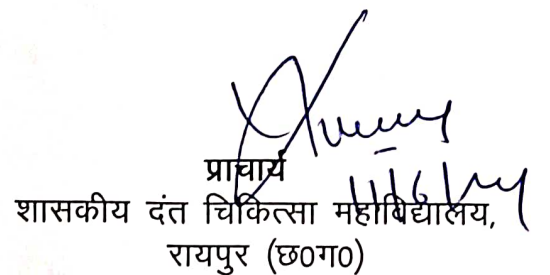 प्राचार्य
शासकीय दंत चिकित्सा महाविद्यालय,
रायपुर (छ0ग0)